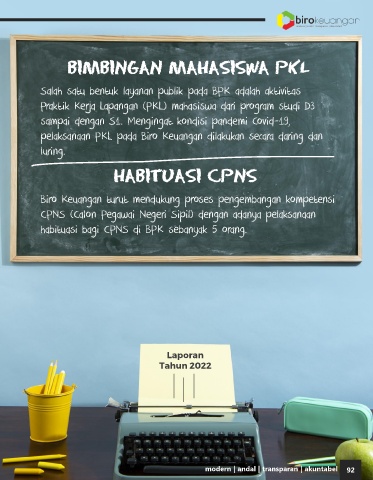 birokeuangan
BIMBINGAN MAHASISWA PKL
Salah satu bentuk layanan publik pada BPK adalah aktivitas
Praktik Kerja Lapangan (PKL) mahasiswa dari program studi D3
sampai dengan S1. Mengingat kondisi pandemi Covid-19,
pelaksanaan PKL pada Biro Keuangan dilakukan secara daring dan
luring.
HABITUASI CPNS
Biro Keuangan turut mendukung proses pengembangan kompetensi
CPNS (Calon Pegawai Negeri Sipil) dengan adanya pelaksanaan
habituasi bagi CPNS di BPK sebanyak 5 orang.
Laporan
Tahun 2022
modern | andal | transparan | akuntabel 92